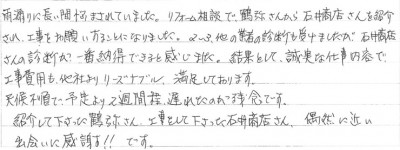 雨漏りに長い間悩まされていました。リフォーム相談で、鶴弥さんから石井商店さんを紹介
され、工事をお願いすることになりました。2〜3、他の業者の診断も受けましたが石井商店
さんの診断が一番納得できると感じました。結果として、誠実な仕事内容で
工事費用も他社よりリーズナブル、満足しております。
天候不順で予定より2週間程、遅れたのが残念です。
紹介して下さった鶴弥さん、工事をして下さった石井商店さん、偶然に近い
出会いに感謝する!!です。